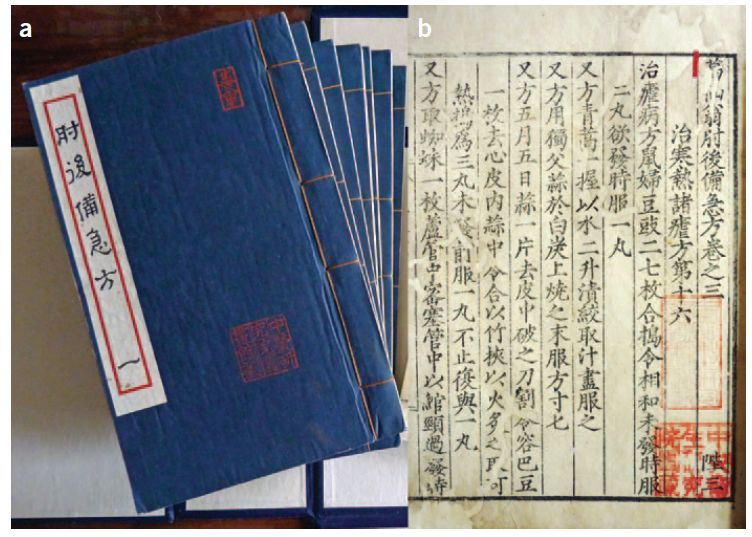 a
肘後備急方 一
b
葛仙翁肘後備急方卷之三
陛三
治寒熱諸瘧方第十六
治瘧病方鼠婦豆豉二七枚合搗令相和未發時服
二丸欲發時服一丸
又方青蒿一握以水二升漬絞取汁盡服之
又方用獨父蒜於白炭上燒之末服方寸匕
又方五月五日蒜一片去皮中破之刀割令容巴豆
一枚去心皮內蒜中令合以竹挾以火炙之取可
熱搗爲三丸未發前服一丸不止復與一丸
又方取蜘蛛一枚蘆管中密塞管中以綰頸過發時